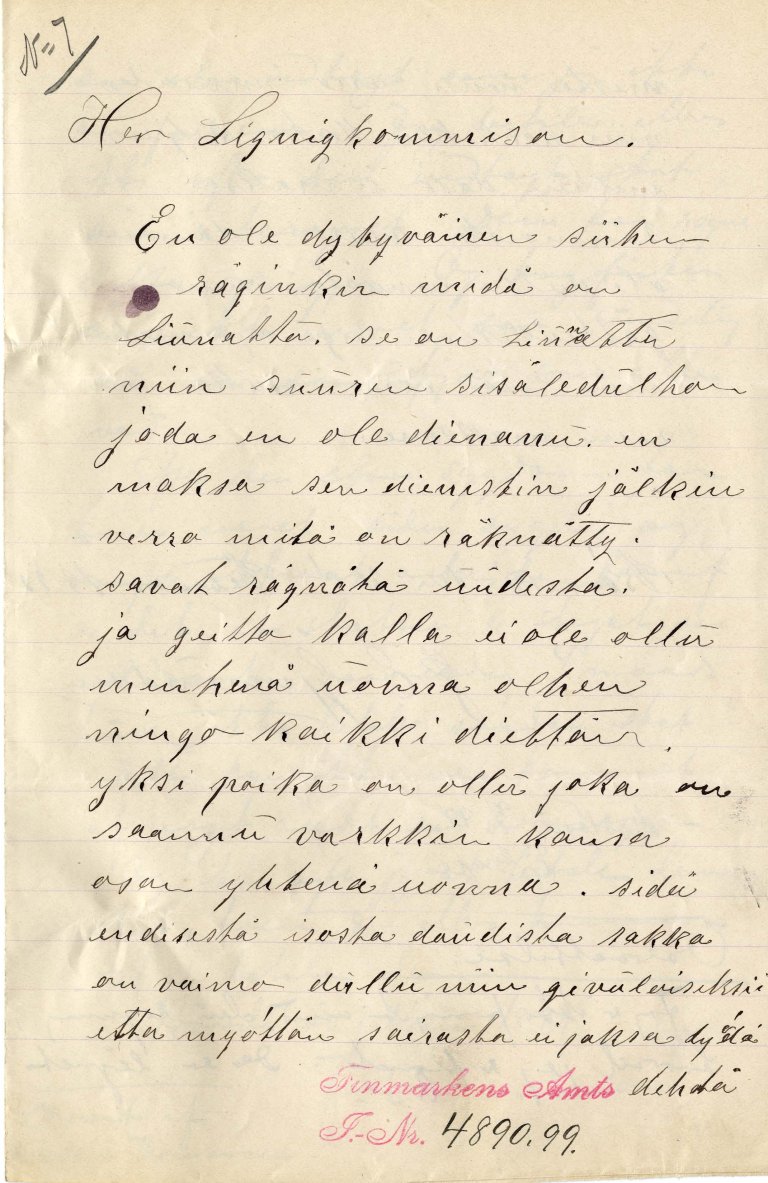 N=7
Herr Lignigkommison.
En ole dybyväinen siihen
räginkin midä on
Liünattü. se on Linnättü
niin süüren sisäledülhon
joda en ole dienannü. en
maksa sen dienistin jälkin
verro mitä on räknätty.
savat rägnätä üüdesta.
ja geitto kalla ei ole ollü
menhenä üonna olhen
ningo kaikki diettän
yksi poika on ollü joka on
saannü varkkin kansa
osan yhtenä uonna. sidä
endisestä isosta doüdista sakka
on vaimo düllü niin givüloiseksii
etta myöttän sairasta ei jaksa dyödä
dehdä
Finmarkens Amts
J.-Nr. 4890.99.